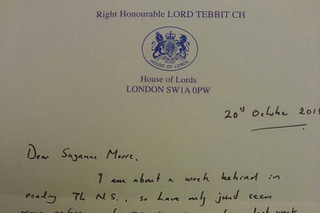 Right Honourable LORD TEBBIT CH
HOUSE OF LORDS
House of Lords
LONDON SW1A 0PW
20th October 201
Dear Suzanne Moore,
I am about a week behind in
reading The N.S., so have only just seen
last week